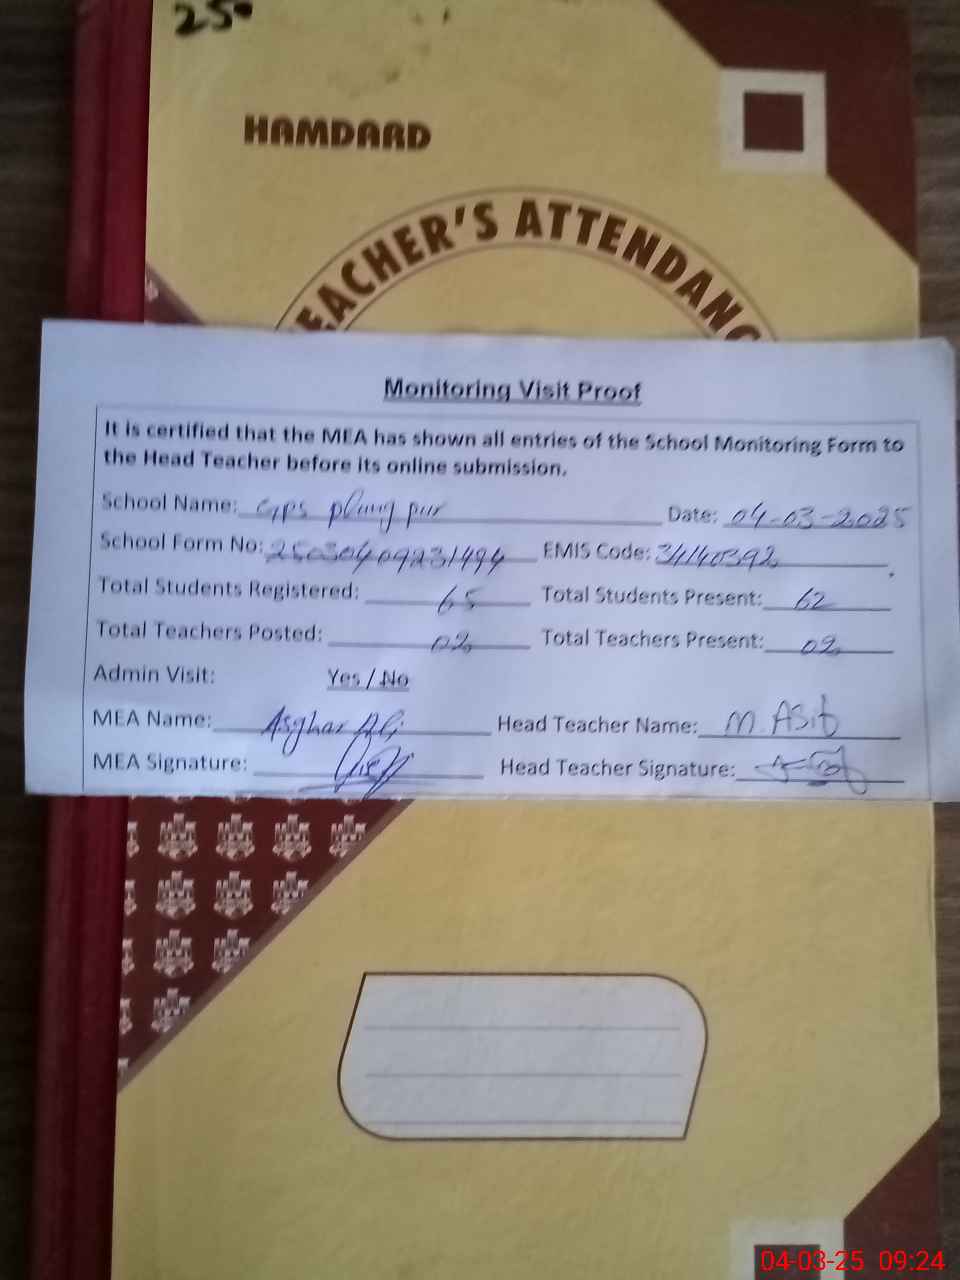 250
HAMDARD
TEACHER'S ATTENDANC
Monitoring Visit Proof
It is certified that the MEA has shown all entries of the School Monitoring Form to
the Head Teacher before its online submission.
School Name: GPS plung pur Date: 04-03-2025
School Form No: 25030409231494 EMIS Code: 34140392
Total Students Registered: 65 Total Students Present: 62
Total Teachers Posted: 02 Total Teachers Present: 02
Admin Visit: Yes / No
MEA Name: Asghar Ali Head Teacher Name: M. ASif
MEA Signature: Head Teacher Signature:
04-03-25 09:24